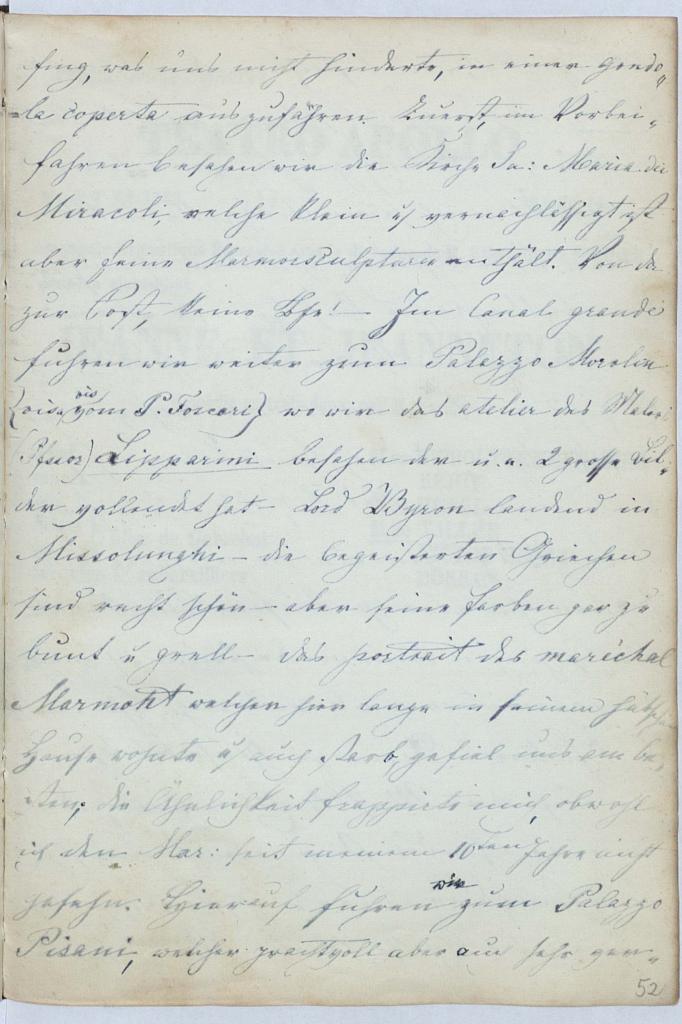 fing, was uns nicht hinderte, in einer gondo„
„la coperta auszufahren. Zuerst, im Vorbei„
fahren besahen wir die Kirche Sa: Maria dei
Miracoli, welche klein u vernachlässigt ist
aber feine Marmorsculpturen enthält. Von da
zur Post, keine Bfe! — Im Canal grande
fuhren wir weiter zum Palazzo Morolin
{vis vis vom P. Foscari} wo wir das atelier des Malers
(Pfssor) Lipparini besahen der u. a. 2 grosse Bil„
der vollendet hat — Lord Byron landend in
Missolunghi — die begeisterten Griechen
sind recht schön — aber seine Farben gar zu
bunt u grell — das portrait des maréchal
Marmont welcher hier lange in seinem hübschen
Hause wohnte u auch starb, gefiel uns am be„
sten; die Ähnlichkeit frappirte mich, obwohl
ich den Mar: seit meinem 10ten Jahre nicht
gesehn. Hierauf fuhren wir zum Palazzo
Pisani, welcher prachtvoll aber auch sehr ver„
52